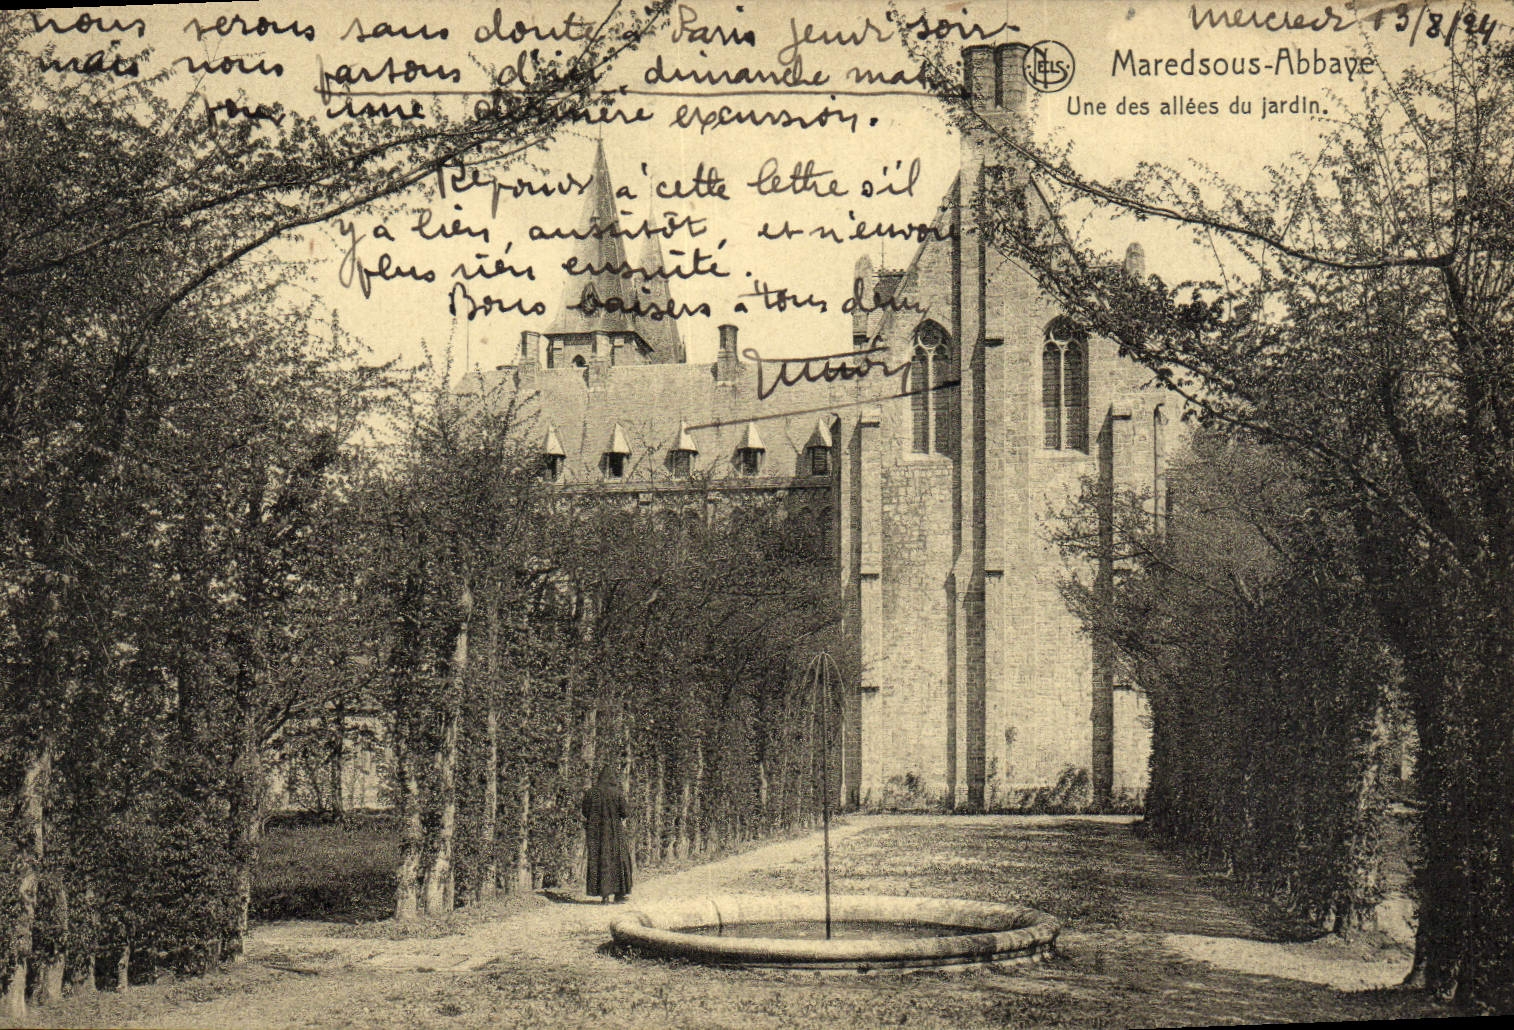 Mercredi 13/8/24
NELS
Maredsous-Abbaye
Une des allées du jardin.
nous serons sans doute à Paris jeudi soir -
mais nous partons d'ici dimanche matin
pour une dernière excursion.
Réponds à cette lettre s'il
y a lieu, aussitôt, et n'envoie
plus rien ensuite.
Bons baisers à tous deux